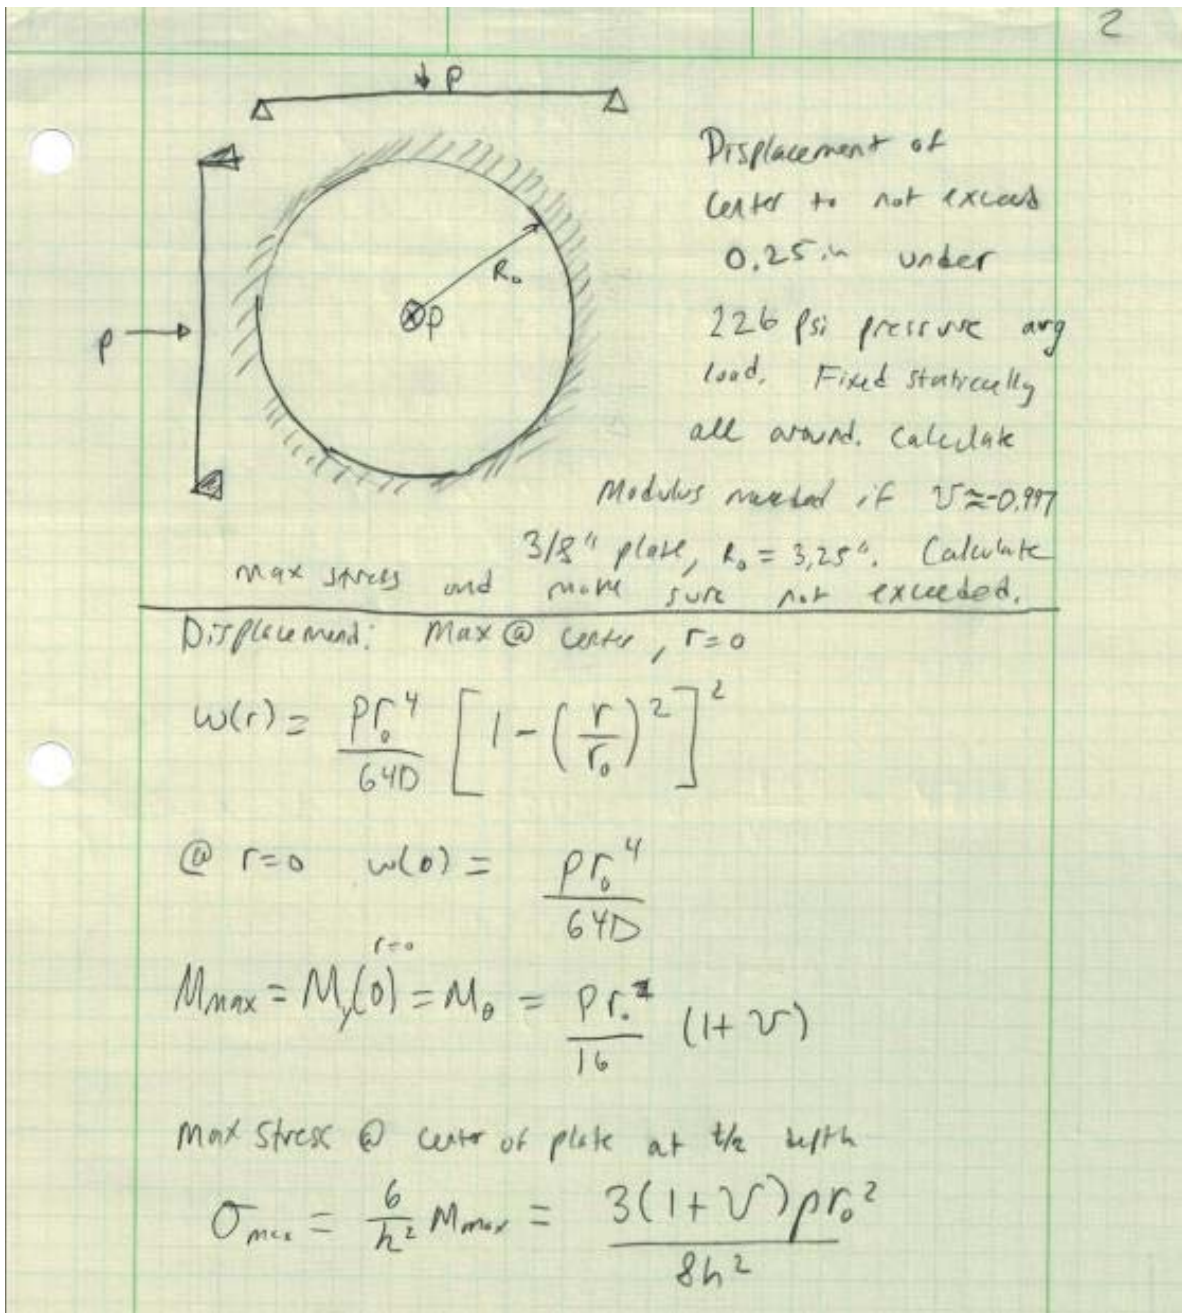 2
↓ P
Displacement of
center to not exceed
0.25 in under
R₀
⊗p
p →
226 psi pressure avg
load. Fixed statically
all around. Calculate
Modulus needed if ν ≈ -0.997
3/8" plate, R₀ = 3.25". Calculate
max stress and make sure not exceeded.
Displacement: Max @ center, r=0
w(r) = pr₀⁴/64D [1 - (r/r₀)²]²
@ r=0 w(0) = pr₀⁴/64D
r=0
Mmax = M (0) = Mθ = pr₀²/16 (1+ν)
max stress @ center of plate at t/2 depth
σmax = 6/h² Mmax = 3(1+ν)pr₀²/8h²